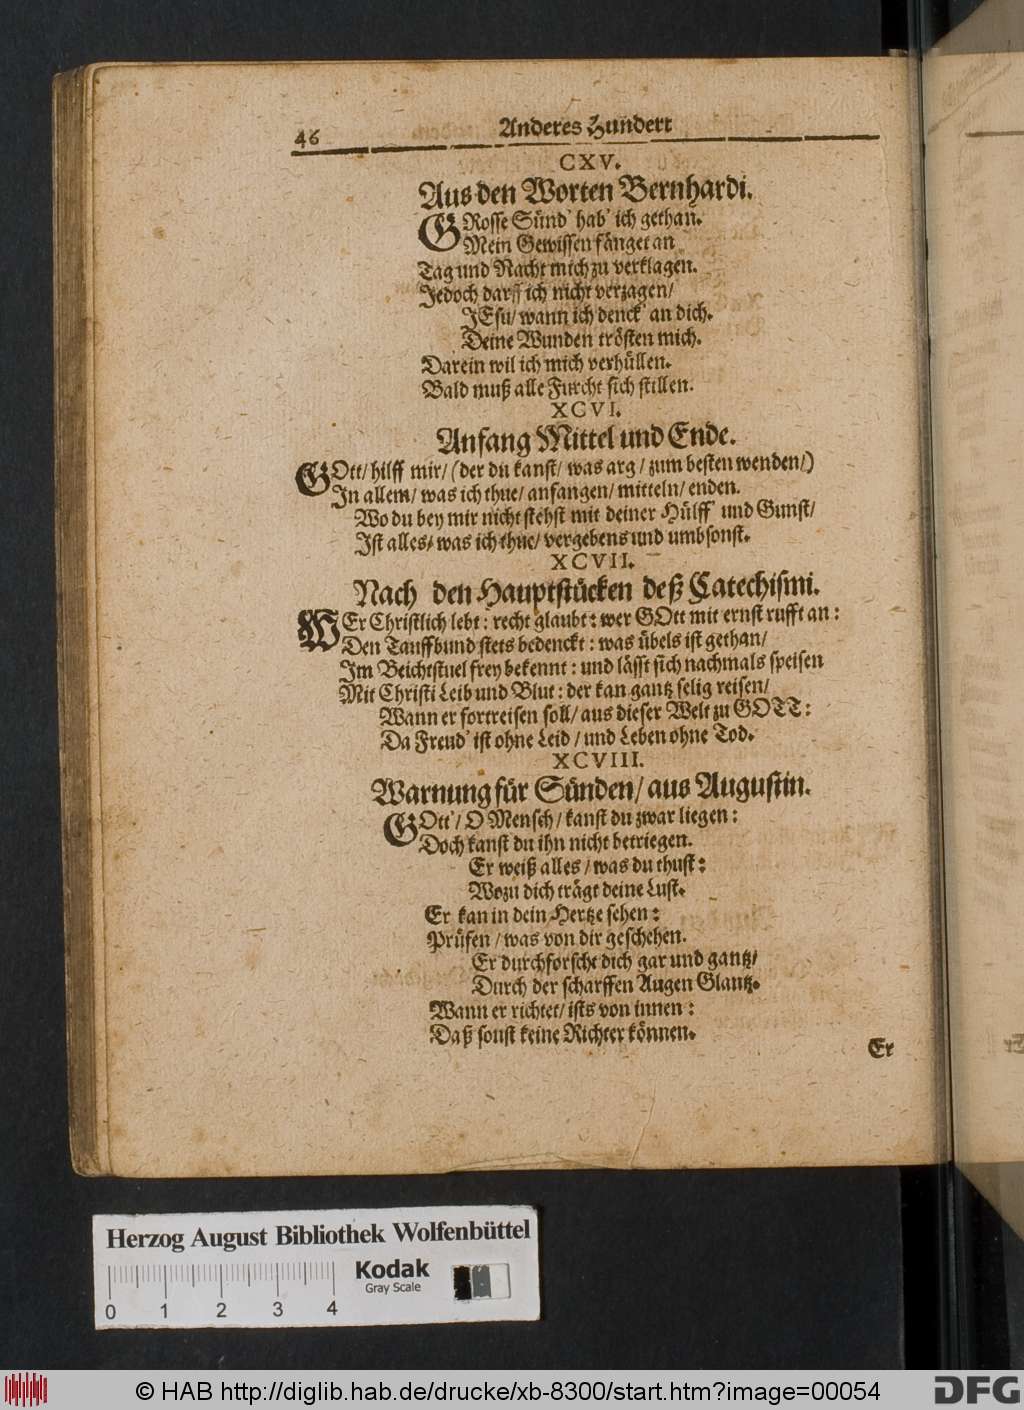 46
Anderes Hundert
CXV.
Aus den Worten Bernhardi.
GRosse Sünd' hab' ich gethan.
Mein Gewissen fänget an
Tag und Nacht mich zu verklagen.
Jedoch darff ich nicht verzagen/
JEsu/ wann ich denck' an dich.
Deine Wunden trösten mich.
Darein wil ich mich verhüllen.
Bald muß alle Furcht sich stillen.
XCVI.
Anfang Mittel und Ende.
GOtt/ hilff mir/ (der du kanst/ was arg/ zum besten wenden/)
In allem/ was ich thue/ anfangen/ mitteln/ enden.
Wo du bey mir nicht stehst mit deiner Hülff' und Gunst/
Ist alles/ was ich thue/ vergebens und umbsonst.
XCVII.
Nach den Hauptstücken deß Catechismi.
WEr Christlich lebt: recht glaubt: wer GOtt mit ernst rufft an:
Den Tauffbund stets bedenckt: was übels ist gethan/
Im Beichtstuel frey bekennt: und lässt sich nachmals speisen
Mit Christi Leib und Blut: der kan gantz selig reisen/
Wann er fortreisen soll/ aus dieser Welt zu GOTT:
Da Freud' ist ohne Leid/ und Leben ohne Tod.
XCVIII.
Warnung für Sünden/ aus Augustin.
GOtt'/ O Mensch/ kanst du zwar liegen:
Doch kanst du ihn nicht betriegen.
Er weiß alles/ was du thust:
Wozu dich trägt deine Lust.
Er kan in dein Hertze sehen:
Prüfen/ was von dir geschehen.
Er durchforscht dich gar und gantz/
Durch der scharffen Augen Glantz.
Wann er richtet/ ists von innen:
Daß sonst keine Richter können.
Er
Herzog August Bibliothek Wolfenbüttel
Kodak
Gray Scale
0 1 2 3 4
© HAB http://diglib.hab.de/drucke/xb-8300/start.htm?image=00054
DFG